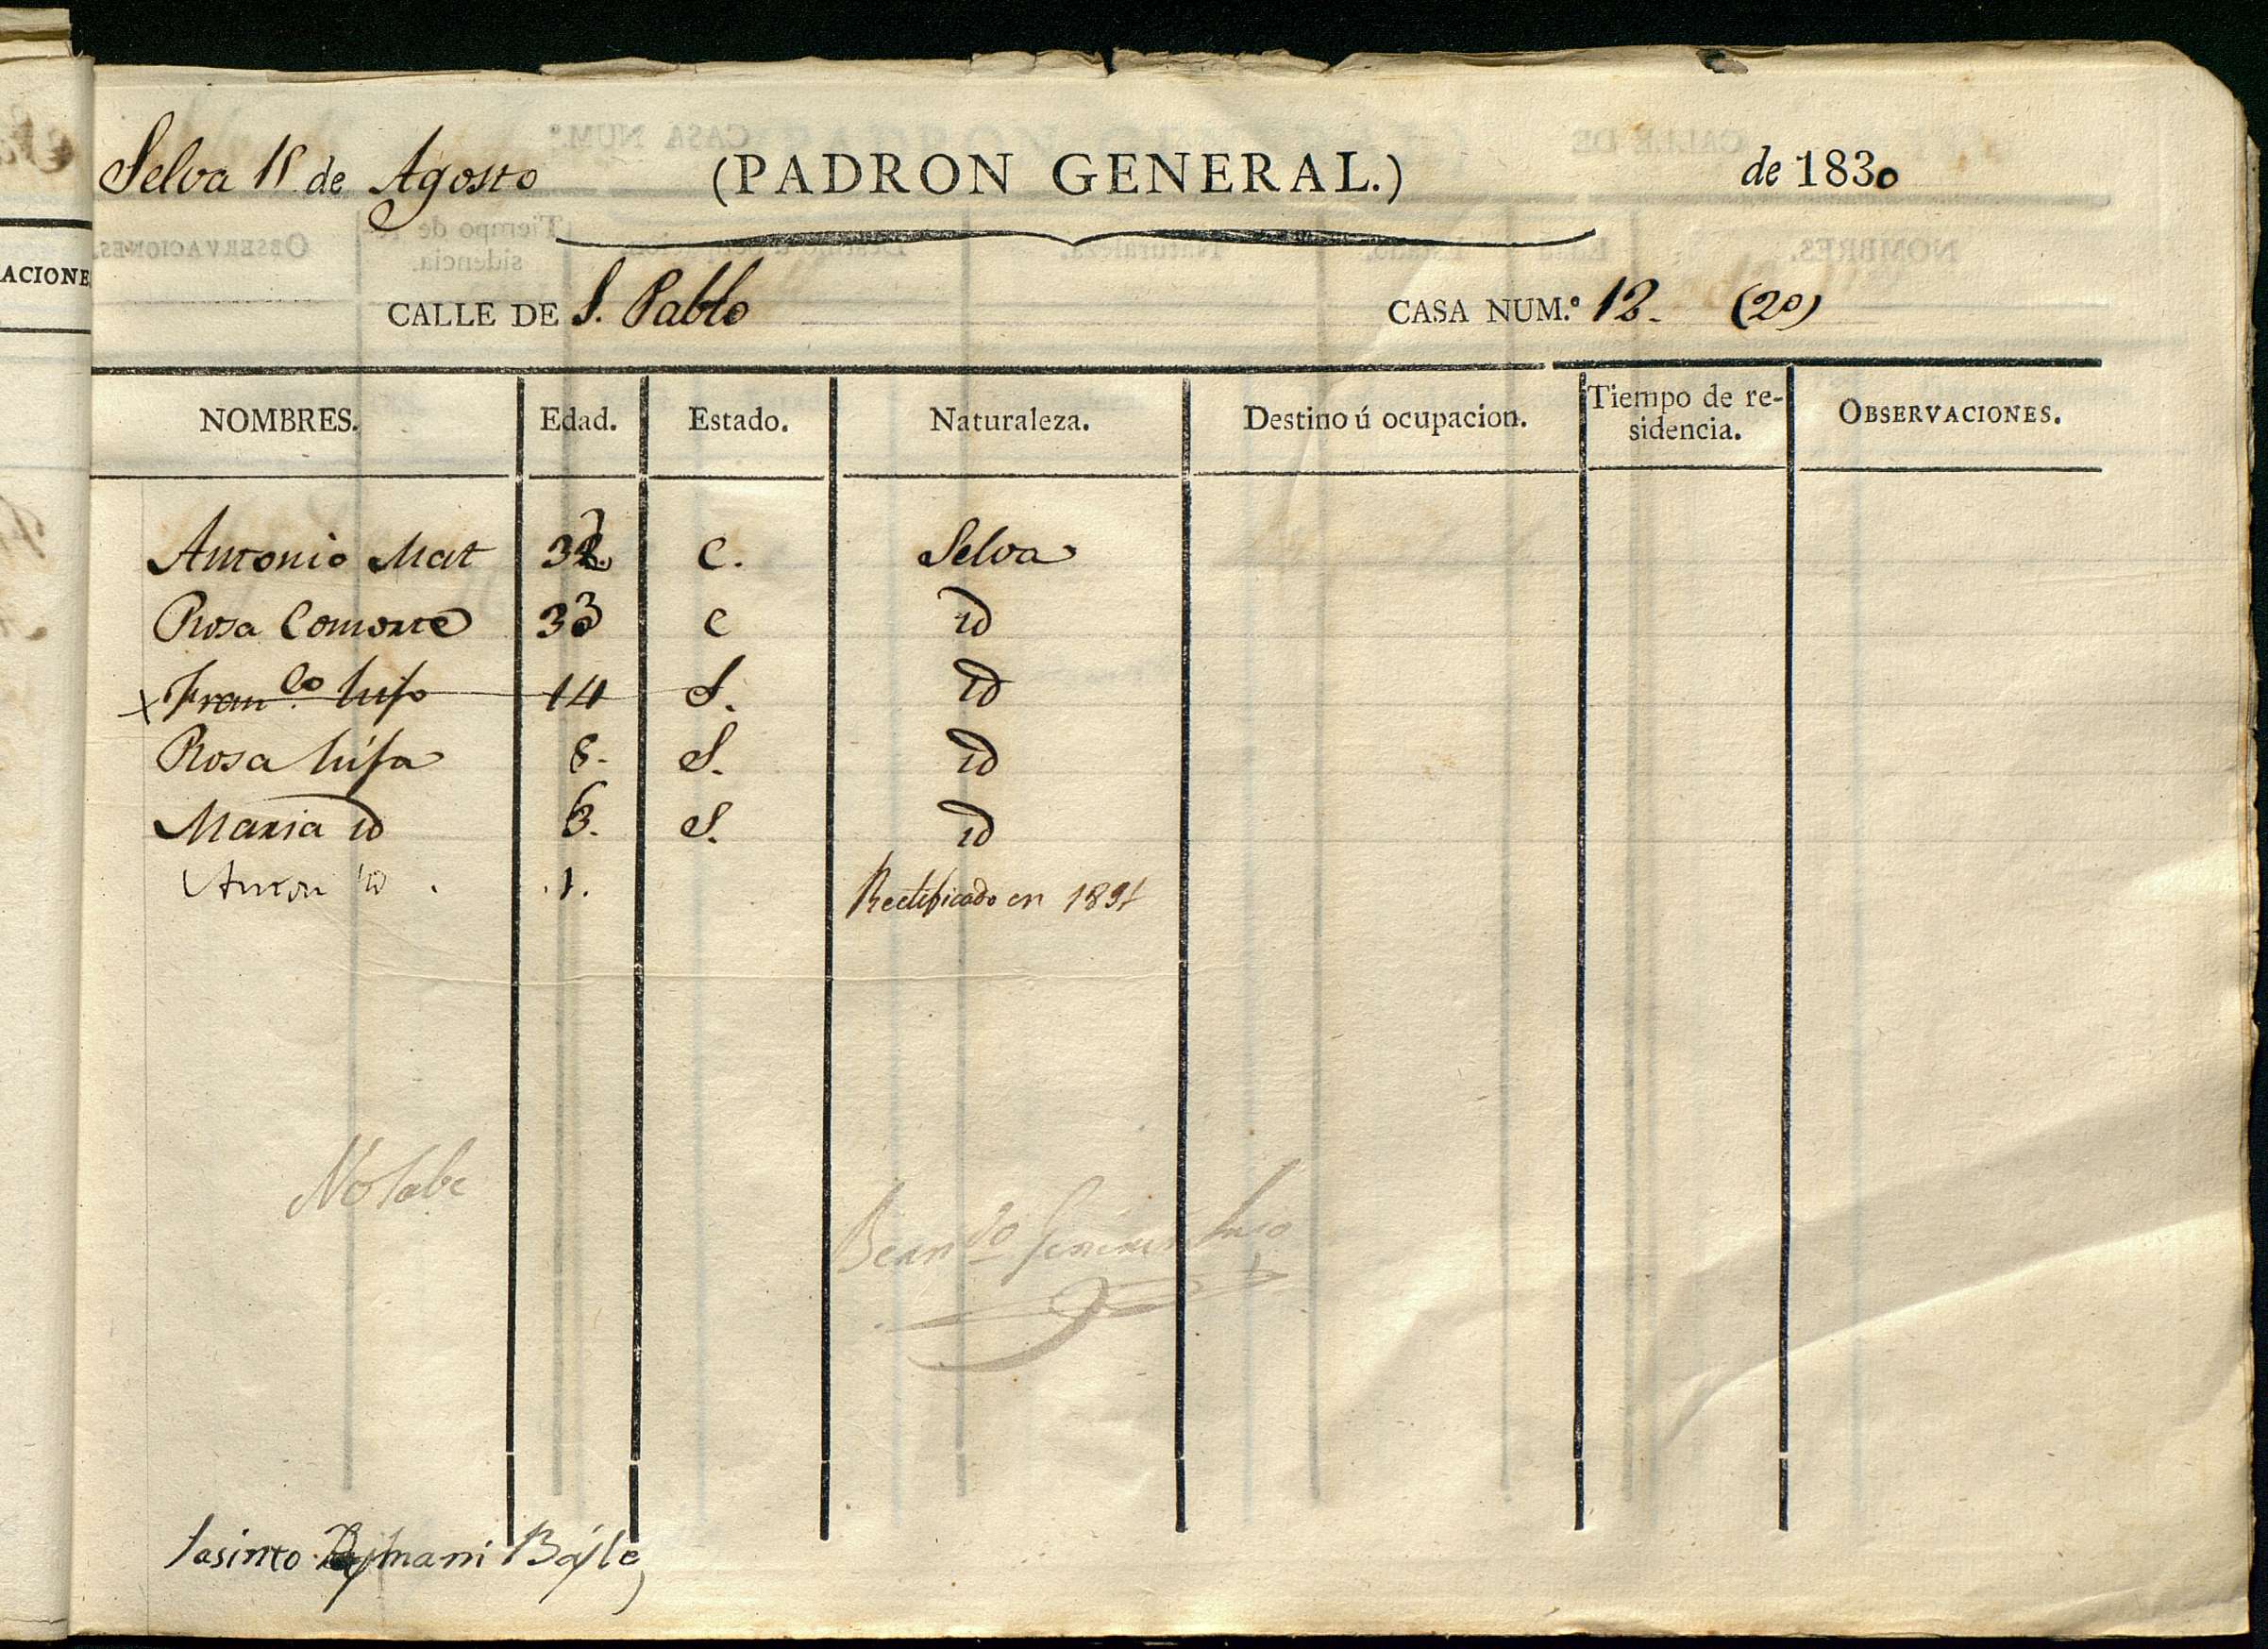 Selva 15 de Agosto (PADRON GENERAL.) de 1830
CALLE DE S. Pablo CASA NUM.º 12. (20)
ACIONE
NOMBRES. Edad. Estado. Naturaleza. Destino ú ocupacion. Tiempo de re-sidencia. OBSERVACIONES.
Antonio Mat 33 C. Selva
Rosa Comorte 33 C id
Fran.co hijo 14 S. id
Rosa hija 8. S. id
Maria id 6. S. id
Anton id . 1. Rectificado en 1831
No sabe
Bern.do
Jasinto Bayle